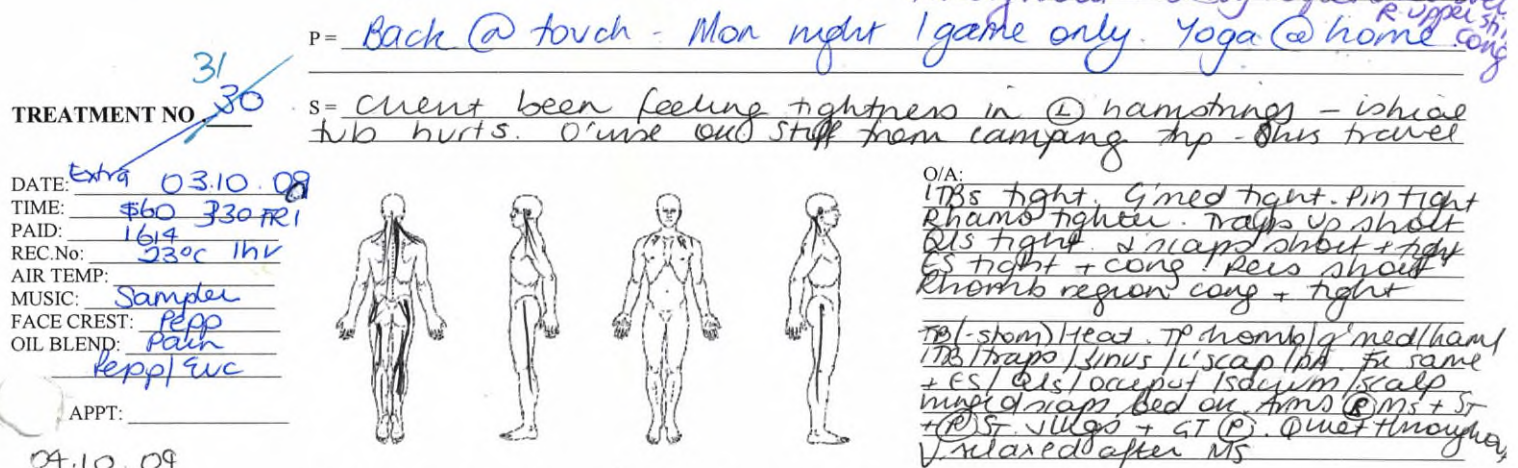 R. upper sh
cong
P= Back @ touch - Mon night 1 game only. Yoga @ home
31
TREATMENT NO. 30
S= Client been feeling tightness in (L) hamstrings - ishial
tub hurts. O'wise out stiff from camping trip - travel
DATE: Extra 03.10.09
TIME: $60 330 FRI
PAID: 1614
REC.No: 23°C 1hr
AIR TEMP:
MUSIC: Sampler
FACE CREST: Pepp
OIL BLEND: Pain
Pepp/Euc
APPT:
04.10.09
O/A:
ITBs tight. G'med tight. Pin tight
Rhams tighter. Traps up short
QLs tight. L'scaps short + tight
ES tight + cong. Pecs short
Rhomb region cong + tight
TB(-stom)/Heat. TP rhomb/g'med/ham/
ITB/traps/sinus/l'scap/ Fx same
+ ES/QLs/occiput/sacrum/scalp
bed on. Arms (R) MS + ST
+ (P) ST. + GT (P). Quiet throughout
V relaxed after MS